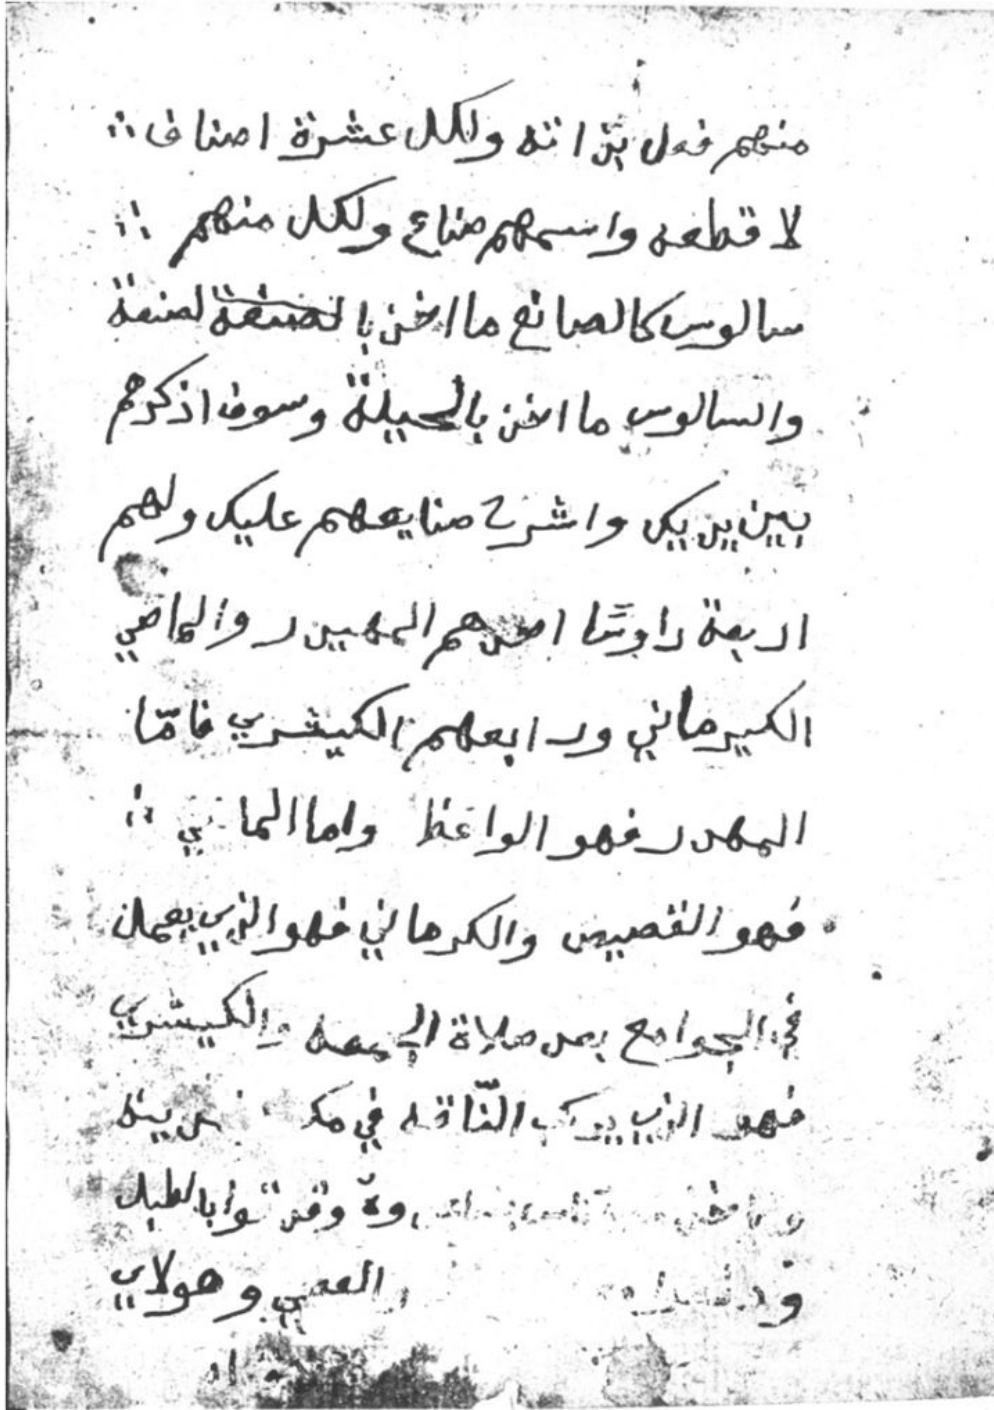 منهم فعل بذاته ولكل عشرة اصناف
لا قطعه واسمهم صناع ولكل منهم
سالوس كالصانع ما اخذ بالصنعة لصنعة
والسالوس ما اخذ بالحيلة وسوف اذكرهم
بين يديك واشرح صنايعهم عليك ولهم
اربعة احدهم المهيدر والماضي
الكيرماني ورابعهم الكيشري فامّا
المهدر فهو الواعظ واما الما
فهو القصيص والكرماني فهو الذي يعمل
في الجوامع بعد صلاة الجمعه والكيشري
فهو الذي يركب النّاقه في
بالطبل
العصي وهولاي